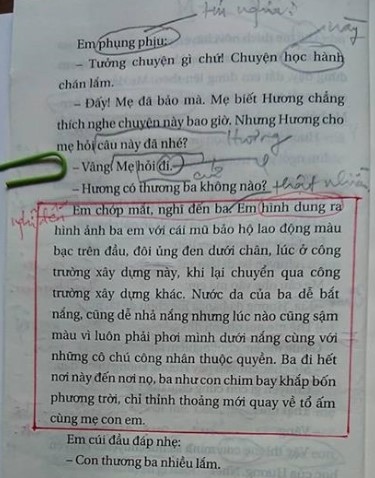 Em phụng phịu:
– Tưởng chuyện gì chứ! Chuyện học hành
chán lắm.
– Đấy! Mẹ đã bảo mà. Mẹ biết Hương chẳng
thích nghe chuyện này bao giờ. Nhưng Hương cho
mẹ hỏi câu này đã nhé?
Hương
– Vâng. Mẹ hỏi đi.
– Hương có thương ba không nào?
Em chớp mắt, nghĩ đến ba. Em hình dung ra
hình ảnh ba em với cái mũ bảo hộ lao động màu
bạc trên đầu, đôi ủng đen dưới chân, lúc ở công
trường xây dựng này, khi lại chuyển qua công
trường xây dựng khác. Nước da của ba dễ bắt
nắng, cũng dễ nhả nắng nhưng lúc nào cũng sậm
màu vì luôn phải phơi mình dưới nắng cùng với
những cô chú công nhân thuộc quyền. Ba đi hết
nơi này đến nơi nọ, ba như con chim bay khắp bốn
phương trời, chỉ thỉnh thoảng mới quay về tổ ấm
cùng mẹ con em.
Em cúi đầu đáp nhẹ:
– Con thương ba nhiều lắm.